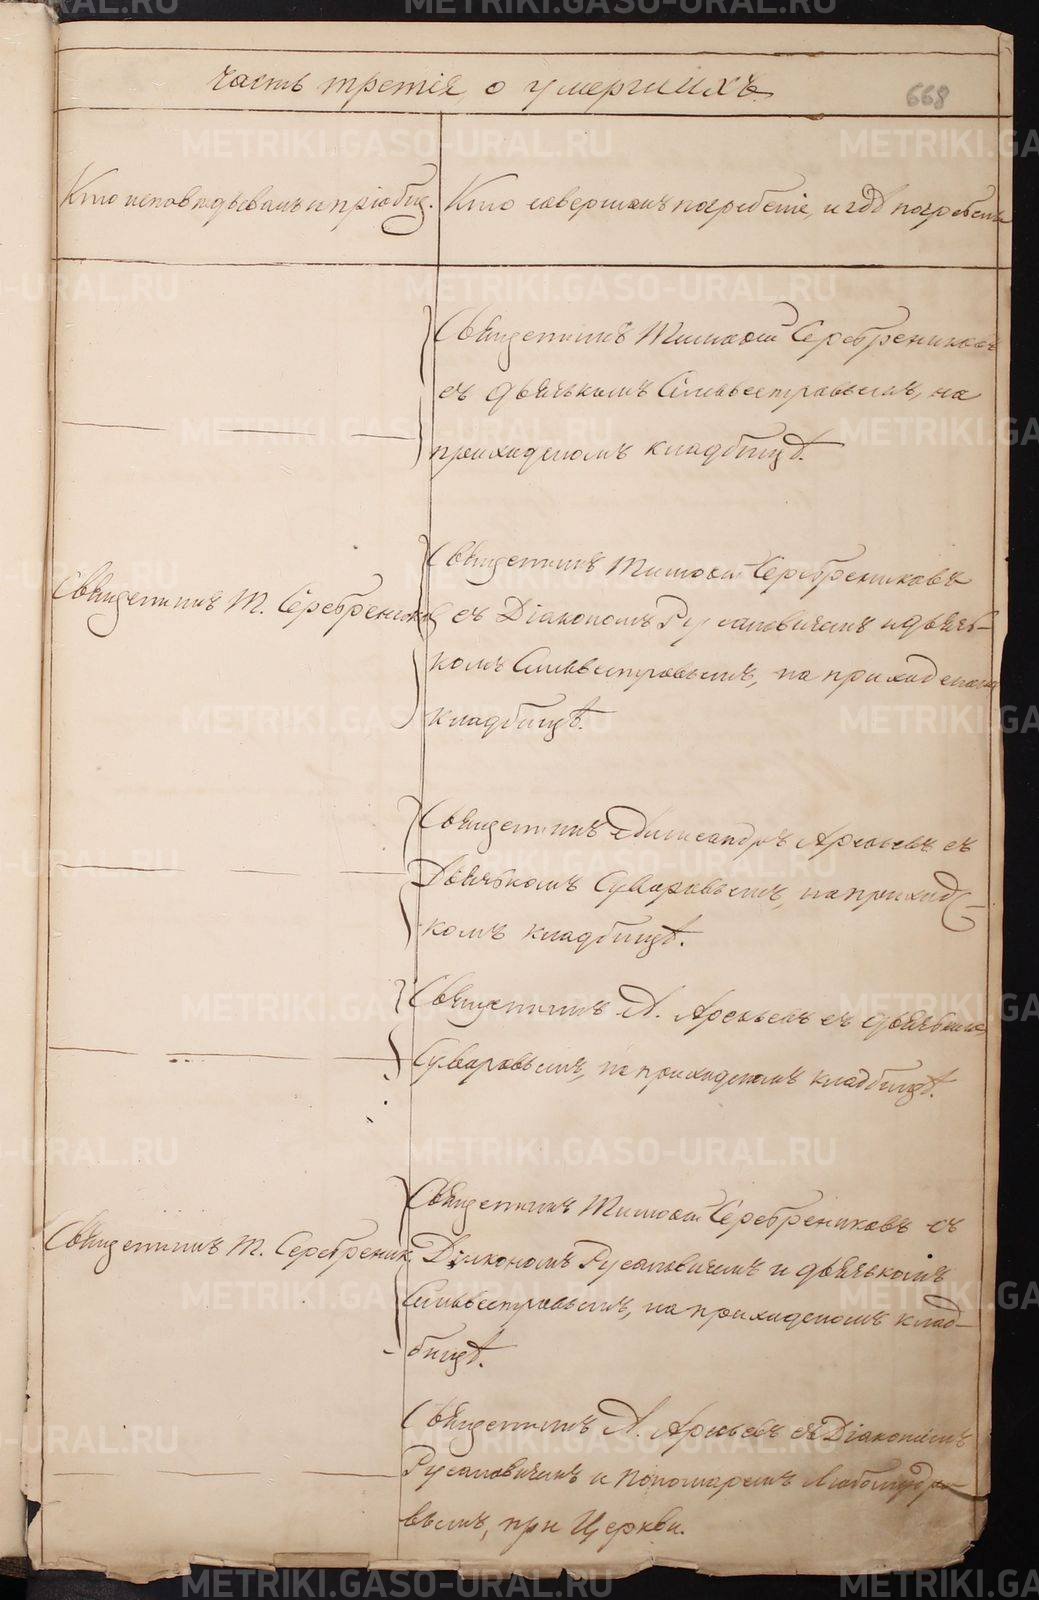 часть третія, о умершихъ
668
Кто исповѣдывалъ и пріобщ.
Кто совершалъ погребеніе, и гдѣ погребены
Священникъ Тимоѳей Серебрениковъ
съ дьячькомъ Сильвестровымъ, на
приходскомъ кладбищѣ.
Священникъ Т. Серебреник
Священникъ Тимоѳей Серебрениковъ
съ Діакономъ Русановичемъ и дьячь-
комъ Сильвестровымъ, на приходском
кладбищѣ.
Священникъ Александръ Арефьевъ съ
Дьячькомъ Суваровымъ, на приход-
комъ кладбищѣ.
Священникъ А. Арефьевъ съ дьячьком
Суваровымъ, на приходскомъ кладбищѣ.
Священникъ Т. Серебреник.
Священникъ Тимоѳей Серебрениковъ съ
Діакономъ Русановичемъ и дьячькомъ
Сильвестровымъ, на приходскомъ клад-
бищѣ.
Священникъ А. Арефьевъ съ Діакономъ
Русановичемъ и Пономаремъ Любомудро-
вымъ, при Церкви.
METRIKI.GASO-URAL.RU